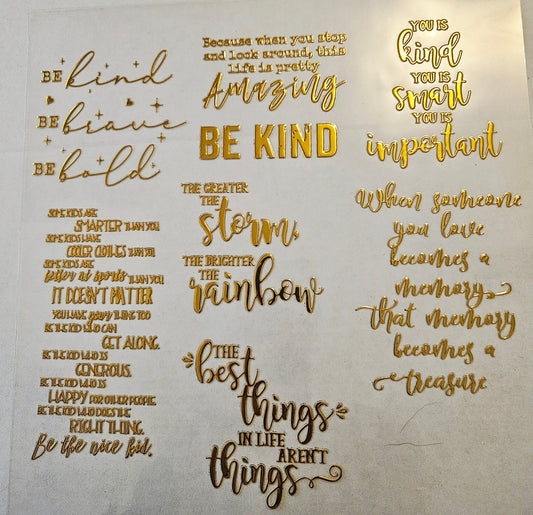 BE kind
BE brave
BE bold
Because when you stop
and look around, this
life is pretty
Amazing
BE KIND
YOU IS
kind
YOU IS
smart
YOU IS
important
SOME KIDS ARE
SMARTER THAN YOU
SOME KIDS HAVE
COOLER CLOTHES THAN YOU
SOME KIDS ARE
better at sports THAN YOU
IT DOESN'T MATTER
YOU HAVE your THING TOO
BE THE KID WHO CAN
GET ALONG.
BE THE KID WHO IS
GENEROUS.
BE THE KID WHO IS
HAPPY FOR OTHER PEOPLE.
BE THE KID WHO DOES THE
RIGHT THING.
Be the nice kid.
THE GREATER
THE
storm,
THE BRIGHTER
THE
rainbow
THE
best
things
IN LIFE
AREN'T
things
When someone
you love
becomes a
memory
that memory
becomes a
treasure